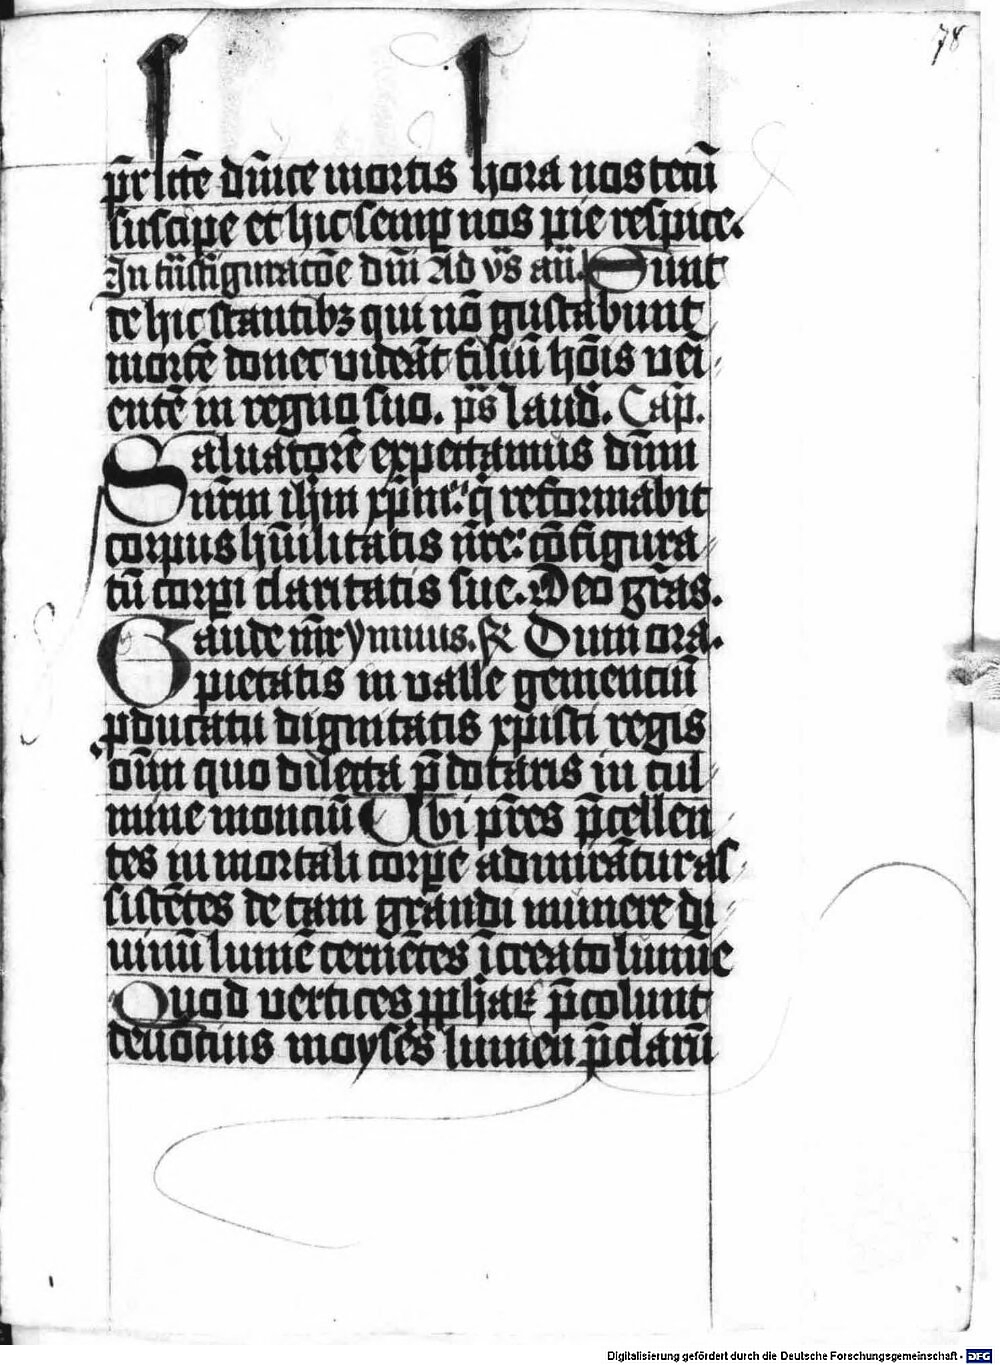 78
p̄r lct̄e dūice mortis hora nos tecū
suscipe et hic semp nos pie respice.
In tn̄sfiguracōe dn̄i Ad vs̄ an̄. Sunt
de hic stantibꝫ qui nō gustabunt
mortē donec videāt filiū hōis vei
entē in regno suo. ps̄ laud. Cap̄.
Saluatorē expectamus dn̄m
nr̄m ih̄m xp̄m: q̄ reformabit
corpus hūilitatis nr̄e: cōfigura
tū corpi claritatis sue. Deo gr̄as.
Gaude mr̄ ymnus. ℟ Dum ora.
pietatis in valle gementiū
ꝓducatu dignitatis xpisti regis
oīm quo dilecta p̄ dotaris in cul
mine montiū Ubi pr̄es p̄cellen
tes in mortali corpe admirātur as
sistētes de tam grandi munere di
uinū lumē cernētes īcreato lumīe
Quod vertices ꝓphaꝝ p̄colunt
deuotius moyses lumen p̄clarū
Digitalisierung gefördert durch die Deutsche Forschungsgemeinschaft - DFG